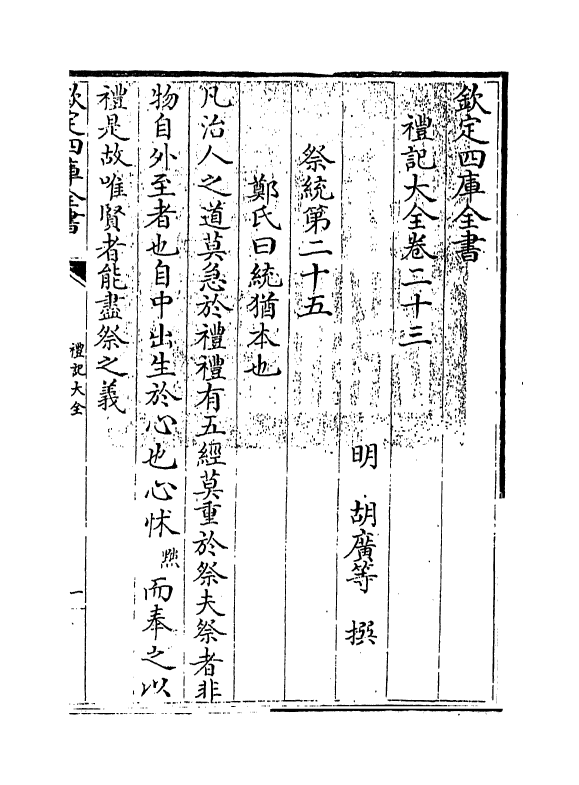 欽定四庫全書
禮記大全卷二十三
明 胡廣等 撰
祭統第二十五
鄭氏曰統猶本也
凡治人之道莫急於禮禮有五經莫重於祭夫祭者非
物自外至者也自中出生於心也心怵 而奉之以
禮是故唯賢者能盡祭之義
欽定四庫全書
禮記大全
一